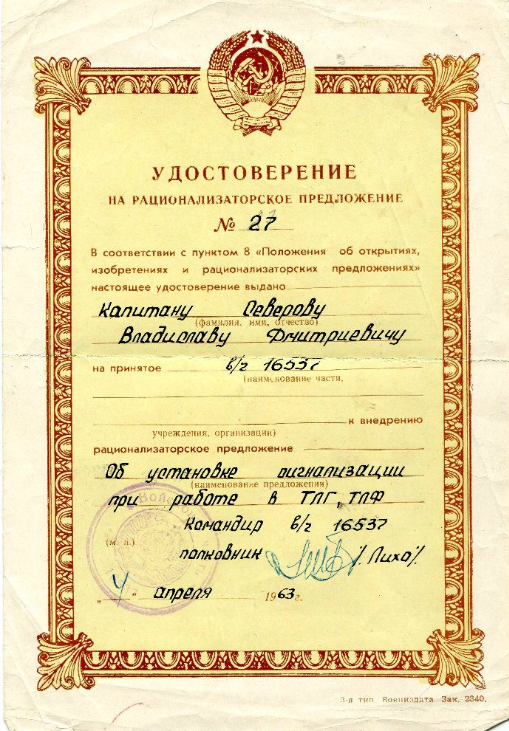 УДОСТОВЕРЕНИЕ
НА РАЦИОНАЛИЗАТОРСКОЕ ПРЕДЛОЖЕНИЕ
№ 27
В соответствии с пунктом 8 «Положения об открытиях,
изобретениях и рационализаторских предложениях»
настоящее удостоверение выдано
Капитану Северову
(фамилия, имя, отчество)
Владиславу Дмитриевичу
на принятое в/г 16537
(наименование части,
к внедрению
учреждения, организации)
рационализаторское предложение
Об установке сигнализации
(наименование предложения)
при работе в ТЛГ „ТЛФ
Командир в/г 16537
(м. п.)
полковник /Лихо/
„4" апреля 1963 г.
3-я тип. Воениздата Зак. 2340.